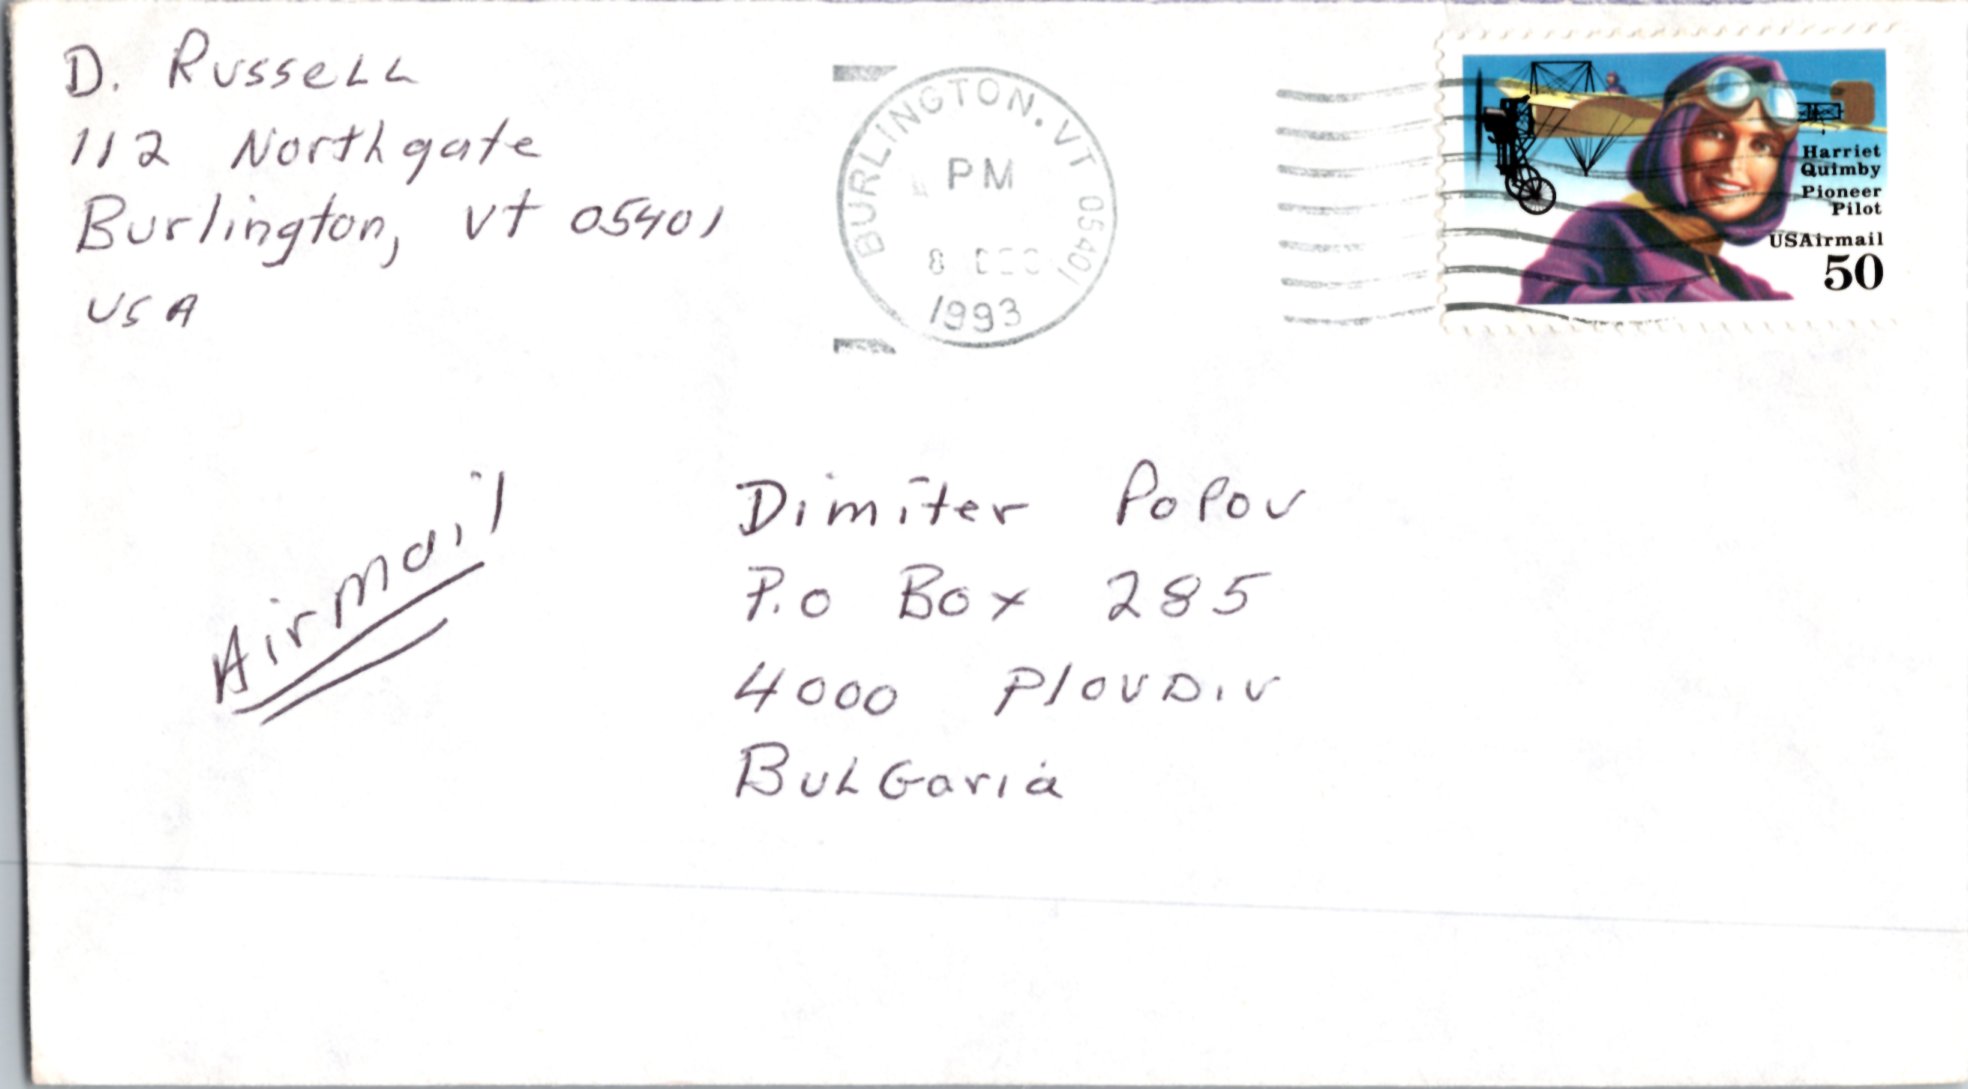 D. Russell
112 Northgate
Burlington, VT 05401
USA
BURLINGTON, VT 05401
PM
8 DEC
1993
Harriet
Quimby
Pioneer
Pilot
USAirmail
50
Airmail
Dimiter Popov
P.O Box 285
4000 Plovdiv
Bulgaria